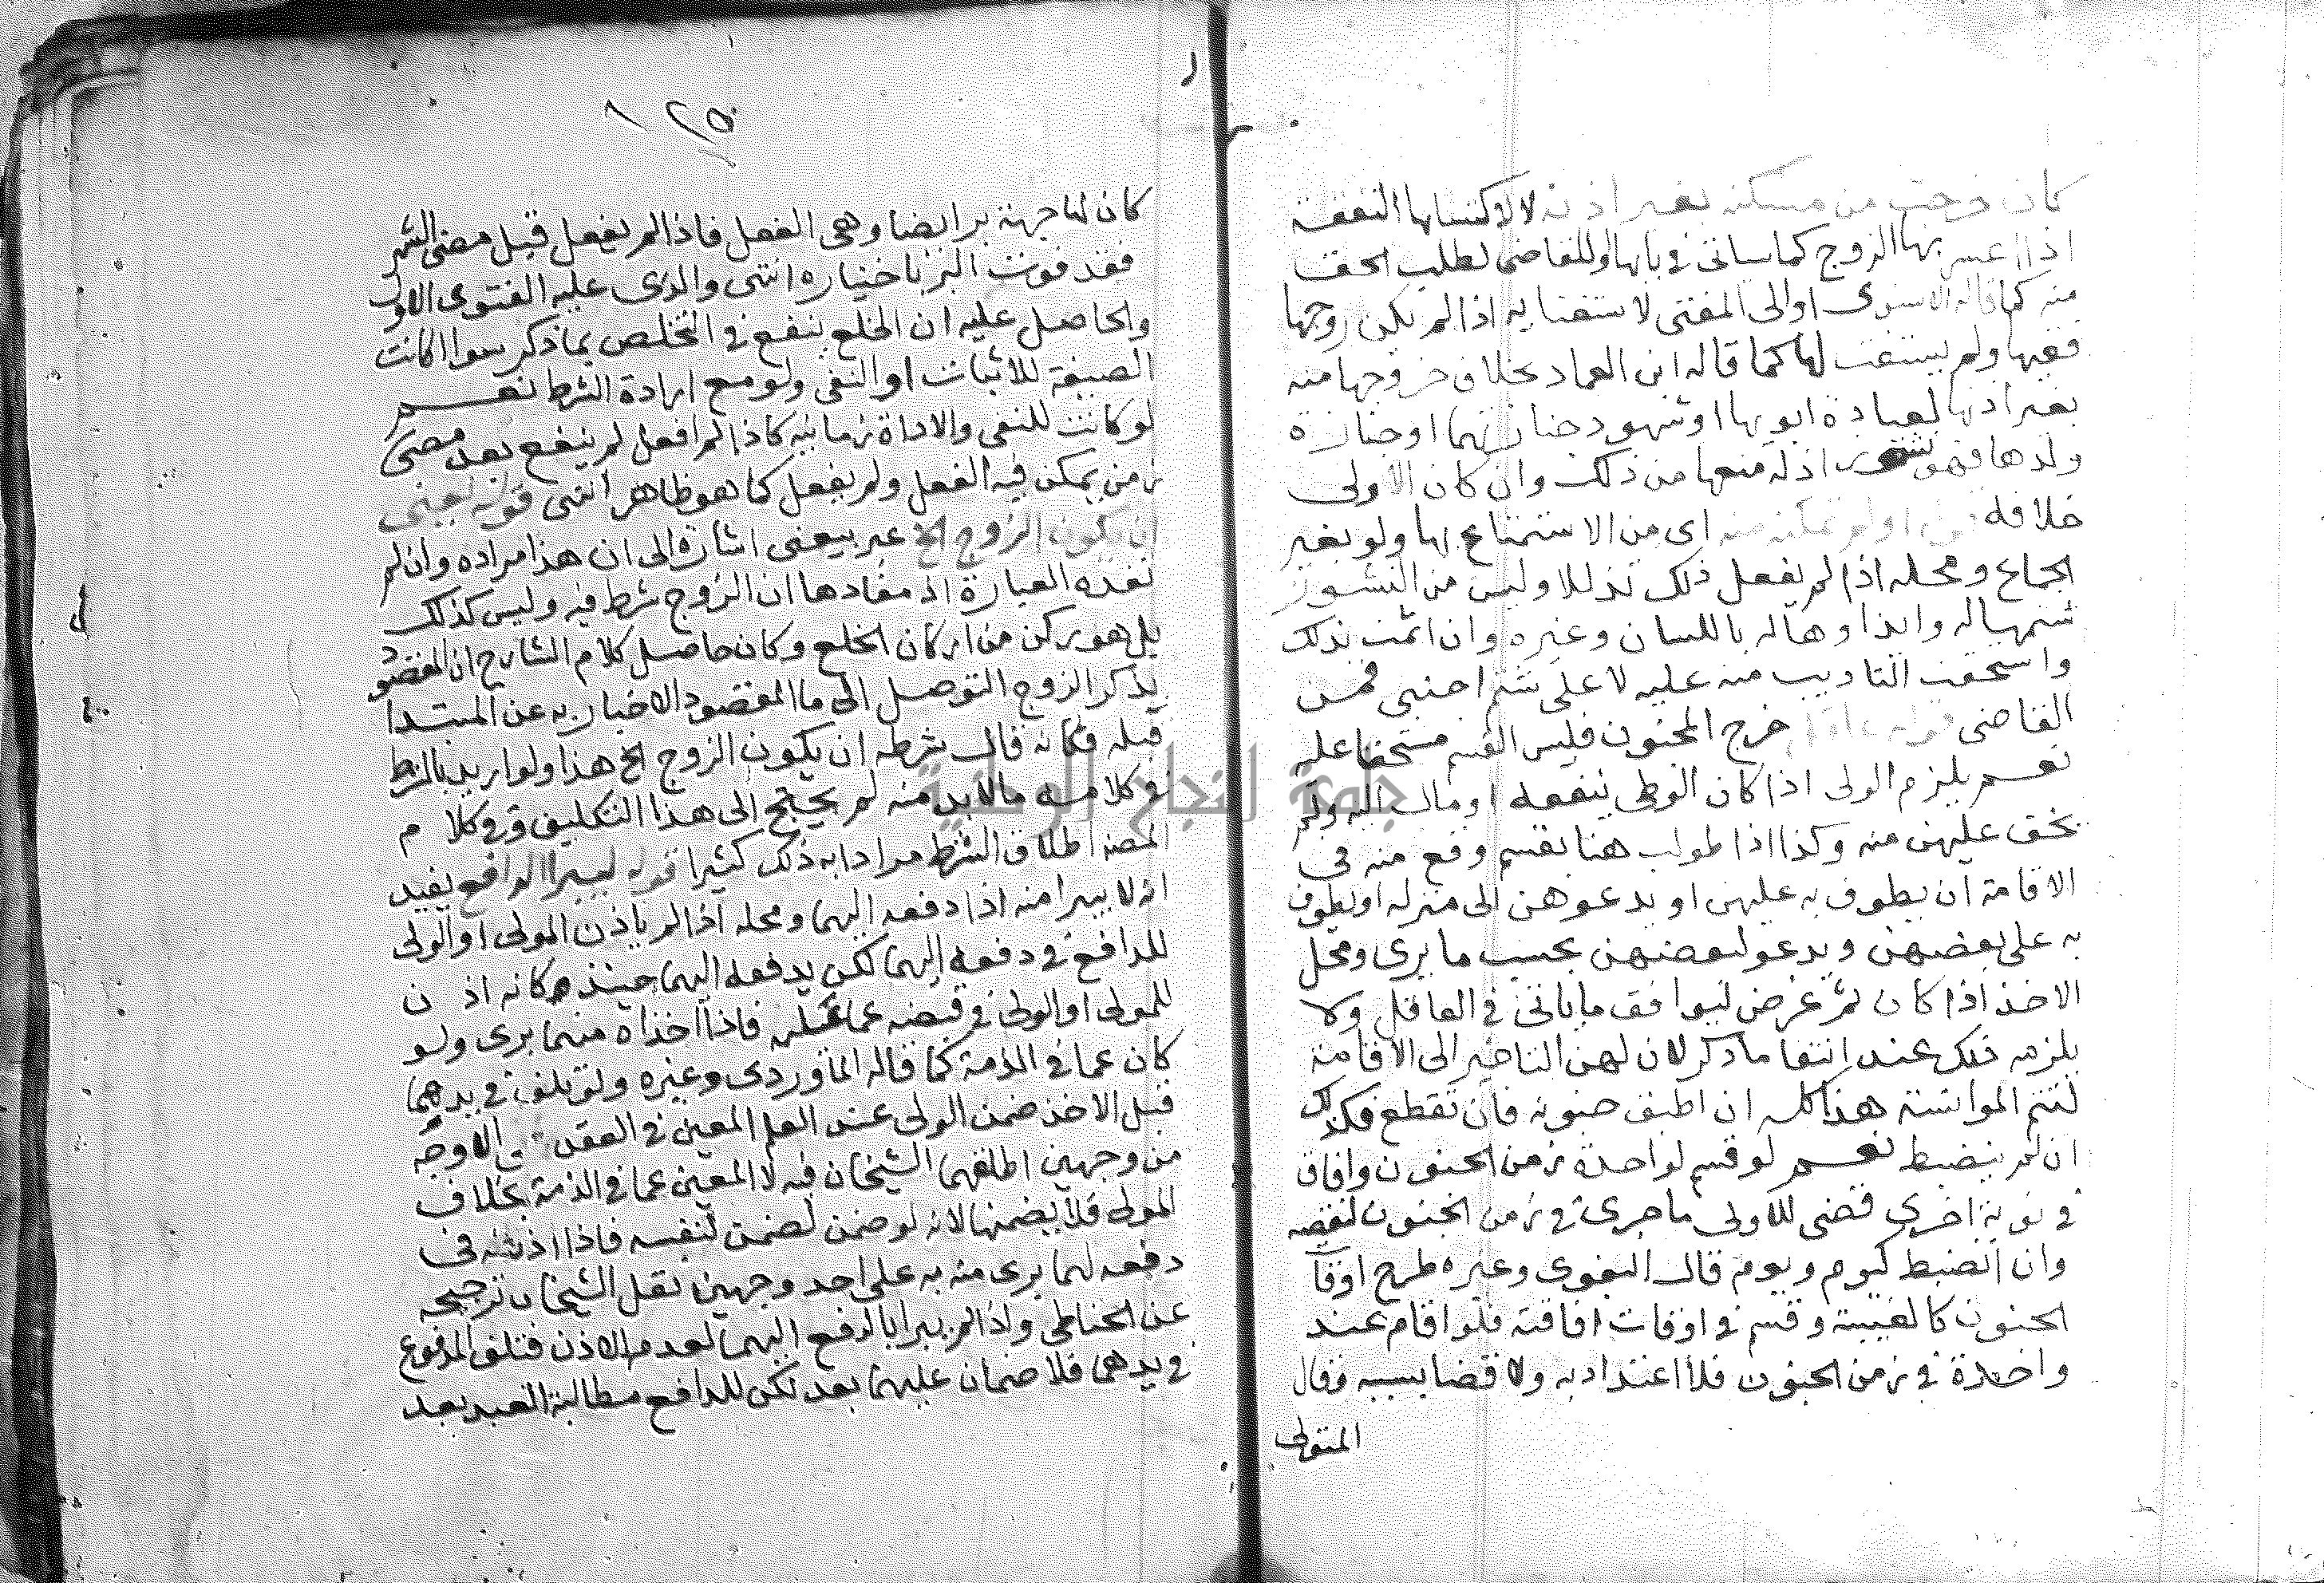 كان خرجت من مسكنه بغير اذنه لا لاكتسابها النفقة
اذا اعسر بها الزوج كما سياتى في بابها وللقاضى لطلب الحق
منه كما قاله الاسنوى او الى المفتى لاستفتايه اذا لم يكن زوجها
فقيها ولم يستفت لها كما قاله ابن العماد بخلاف خروجها منه
بغير اذنها لعيادة ابويها او شهود جنازتهما او جنازة
ولدها فهو نشوز اذ له منعها من ذلك وان كان الاولى
خلافه قوله او لم تمكنه منه اى من الاستمتاع بها ولو بغير
الجماع ومحله اذا لم يفعل ذلك تذللا وليس من النشوز
شتمها له وايذاوها له باللسان وغيره وان اثمت بذلك
واستحقت التاديب منه عليه لا على شتم اجنبى فمن
القاضى قوله خرج المجنون فليس القسم مستحقا عليه
نعم يلزم الولى اذا كان الوطى ينفعه او مال اليه ولم
يخف عليهن منه وكذا اذا طولب هنا بقسم وقع منه في
الاقامة ان يطوف به عليهن او يدعوهن الى منزله او يطوف
به على بعضهن ويدعو لبعضهن بحسب ما يرى ومحل
الاخذ اذا كان ثم غرض ليوافق ما ياتى في العاقل ولا
يلزمه ذلك عند انتفا ما ذكر لان لهن التاخير الى الافاقة
لتتم الموانسة هذا كله ان اطبق جنونه فان تقطع فكذلك
ان لم ينضبط نعم لو قسم لواحدة زمن الجنون وافاق
في نوبة اخرى قضى للاولى ما جرى في زمن الجنون لنقصه
وان انضبط كيوم ويوم قال البغوى وغيره طرح اوقات
الجنون كالغيبة وقسم في اوقات افاقته فلو اقام عند
واحدة في زمن الجنون فلا اعتداد به ولا قضا بسببه وقال
المتولى
١٢٥
كان لنا جهة بر ايضا وهى الفعل فاذا لم يفعل قبل مضى الشهر
فقد فوت البر باختياره انتهى والذى عليه الفتوى الاول
والحاصل عليه ان الخلع ينفع في التخلص بما ذكر سوا اكانت
الصيغة للاثبات او النفى ولو مع ارادة الشرط نعم
لو كانت للنفى والاداة زمانيه كاذا لم افعل لم ينفع بعد مضى
زمن يمكن فيه الفعل ولم يفعل كما هو ظاهر انتهى قوله يعنى
ان يكون الزوج الخ عبر بيعنى اشارة الى ان هذا مراده وان لم
تفده العبارة اذ مفادها ان الزوج شرط فيه وليس كذلك
بل هو ركن من اركان الخلع وكان حاصل كلام الشارح ان المقصود
بذكر الزوج التوصل الى ما المقصود الاخبار به عن المبتدا
قبله فكانه قال شرطه ان يكون الزوج الخ هذا ولو اريد بالشرط
في كلامه ما لا بد منه لم يحتج الى هذا التكليف وفي كلام
المصنف اطلاق الشرط مرادا به ذلك كثيرا قوله ليبرا الدافع يفيد
انه لا يبرا منه اذا دفعه اليهما ومحله اذا لم ياذن المولى او الولى
للدافع في دفعه اليهما لكن يدفعه اليهما حينئذ كانه اذن
للمولى او الولى في قبضه عما عليه فاذا اخذاه منهما برى ولو
كان عما في الذمة كما قاله الماوردى وغيره ولو تلف في يدهما
قبل الاخذ ضمن الولى عند العلم المعين في العقد والاوجه
من وجهين اطلقهما الشيخان فيه لا المعين عما في الذمة بخلاف
المولى فلا يضمنها لانه لو ضمن لضمن لنفسه فاذا اذنه في
دفعه لهما برى منه به على احد وجهين نقل الشيخان ترجيحه
عن الحناطى واذا لم يبرا بالدفع اليهما لعدم الاذن فتلف المدفوع
في يدهما فلا ضمان عليهما بعد لكن للدافع مطالبة العبد بعد